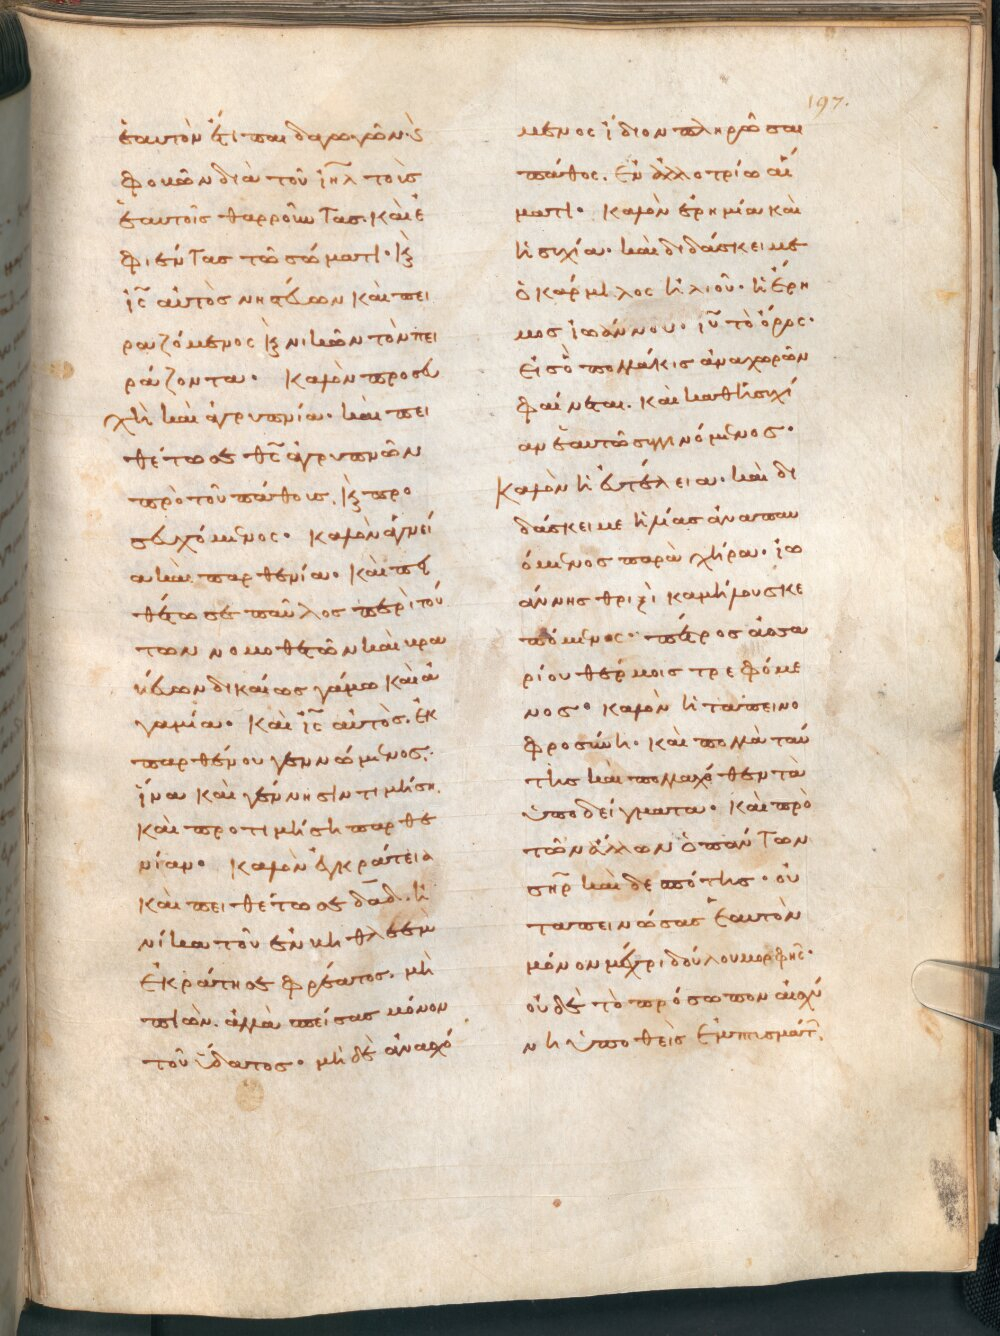 197.
ἑαυτὸν ἔτι παιδαγωγῶν· ὁ
φονῶν διὰ τοῦ ἰη̅λ τοὺσ
ἑαυτοῖσ θαρροῦντασ. καὶ ἐ
φιέντασ τῶ σώματι· κ̀
ι̅ς̅ αὐτὸσ νηστεύων καὶ πει
ραζόμενος κ̀ νικῶν τὸν πει
ράζοντα· καλὸν προσευ
χὴ καὶ ἀγρυπνία· καὶ πει
θέτω σε θ̅ς̅ ἀγρυπνῶν
πρὸ τοῦ πάθους. κ̀ προ
σευχόμενος· καλὸν ἁγνεί
α καὶ παρθενία· καὶ πει
θέτω σε παῦλος περὶ τού
των νομοθετῶν καὶ βρα
βεύων δικαίως γάμω καὶ ἀ
γαμία· καὶ ι̅ς̅ αὐτὸς. ἐκ
παρθένου γεννώμενος.
ἵνα καὶ γέννησιν τιμήση.
καὶ προτιμήση παρθε
νίαν· καλὸν ἐγκράτεια
καὶ πειθέτω σε δα̅δ. ἡ
νίκα τοῦ ἐν βηθλεὲμ
ἐκράτησε φρέατος. μὴ
πιὼν. ἀλλὰ σπείσας μόνον
τοῦ ὕδατος· μηδὲ ἀνασχό
μενος ἴδιον πληρῶσαι
πάθος. ἐν ἀλλοτρίω αἵ
ματι· καλὸν ἐρημία καὶ
ἡσυχία· καὶ διδάσκει με
ὁ κάρμηλος ἡλιοῦ· ἡ ἔρη
μοσ ἰωάννου· ι̅υ̅ τὸ ὄρος·
εἰσ ὃ πολλάκισ ἀναχωρῶν
φαίνεται. καὶ καθ ἡσυχί
αν ἑαυτῶ συγγινόμενοσ·
καλὸν ἡ εὐτέλεια. καὶ δι
δάσκει με ἡλίασ ἀναπαυ
όμενοσ παρὰ χήρα· ἰω
άννησ θριξὶ καμήλου σκε
πόμενος· πέτροσ ἀσσα
ρίου θέρμοισ τρεφόμε
νοσ· καλὸν ἡ ταπεινο
φροσύνη· καὶ πολλὰ ταύ
τησ καὶ πολλαχόθεν τὰ
ὑποδείγματα· καὶ πρὸ
τῶν ἄλλων ὁ πάντων
ση̅ρ καὶ δεσπότησ· οὐ
ταπεινώσασ ἑαυτὸν
μόνον μέχρι δούλου μορφῆς·
οὐδὲ τὸ πρόσωπον αἰσχύ
νη ὑποθεὶσ ἐμπτυσμάτ̅.